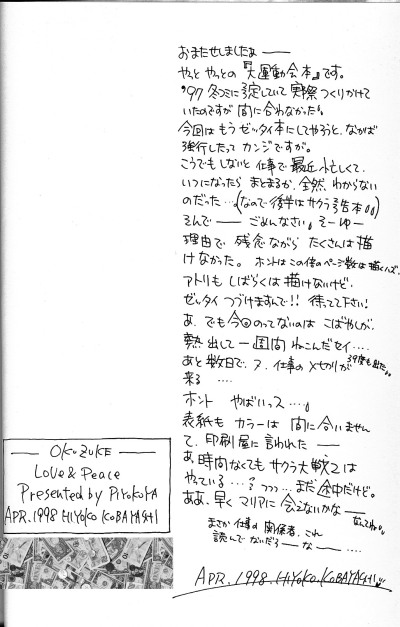 おまたせしましたぁ――
やっと やっとの『大運動会本』です。
'97 冬コミに予定していて 実際 つくりかけて
いたのですが 間に合わなかった。
今回は もう ゼッタイ本にしてやろうと、なかば
強行したって カンジですが。
こうでもしないと 仕事で 最近 忙しくて、
いつになったら まとまるか、全然、わからない
のだった…(なので後半はサクラ予告本)
そんで―― ごめんなさい。そーゆー
理由で、残念ながら たくさんは描
けなかった。 ホントはこの倍のページ数は描くハズ、
アトリも しばらくは 描けないけど、
ゼッタイ つづけますんで!! 待ってて下さい!
あ、でも今回のってないのは こばやしが、
熱出して 一週間 ねこんだセイ‥‥
39度も出た。
あと数日で、又、仕事の〆切りが
来る ‥‥
ホント やばいっス‥‥
表紙も カラーは 間に合いません
て、印刷屋に言われた――
あ、時間なくても サクラ大戦2は
やっている‥‥? っっっ‥まだ途中だけど。
ああ、早く マリアに 会えないかな――
なんてね。
まさか 仕事の 関係者、これ
読んで ないだろ――な――‥‥
APR. 1998. HIYOKO KOBAYASHI
― OKUZUKE ―
Love & Peace
Presented by PIYOKOYA
APR. 1998 HIYOKO KOBAYASHI